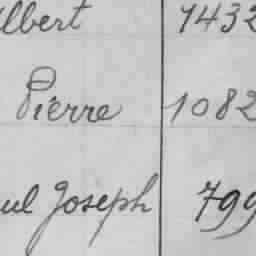 lbert 1432
Pierre 1082
ul Joseph 799